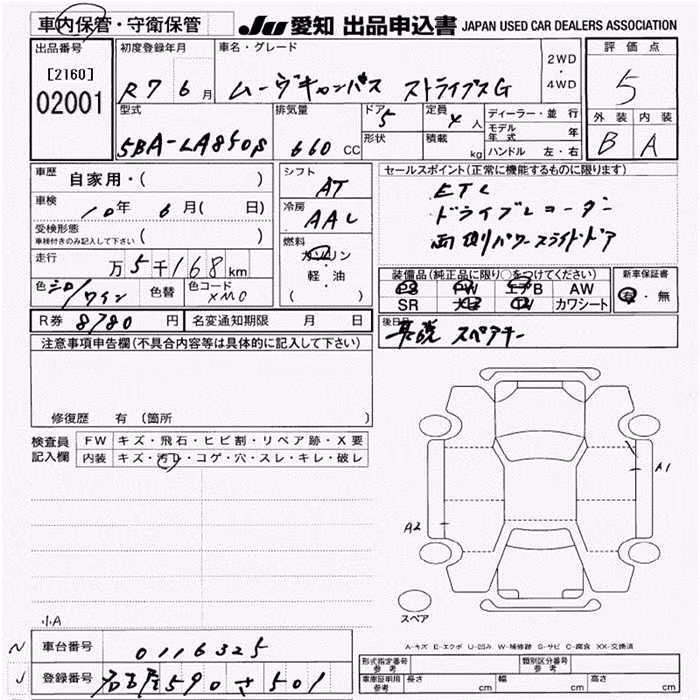 車内保管・守衛保管 JU 愛知 出品申込書 JAPAN USED CAR DEALERS ASSOCIATION
出品番号 初度登録年月 車名・グレード 評価点
[2160] 02001 R7 6月 ムーヴキャンバス ストライプスG 2WD・4WD 5
型式 排気量 ドア 5 定員 4人 ディーラー・並行 外装 内装
5BA-LA850S 660 CC 形状 積載 kg モデル年式 年 B A
ハンドル 左・右
車歴 自家用・( ) シフト AT セールスポイント(正常に機能するものに限ります)
車検 10年 6月( 日) 冷房 AAC ETC
ドライブレコーダー
受検形態 車検付きのみ記入して下さい ( ) 燃料 ガソリン 両側パワースライドドア
走行 万5千168km 軽・油 装備品(純正品に限り○をつけてください) 新車保証書
色 シロ/ワイン 色替 色コード ( ) PS PW エアB AW 有・無
SR カワシート
R券 8780円 名変通知期限 月 日 後日品 取説 スペアキー
注意事項申告欄(不具合内容等は具体的に記入して下さい)
修復歴 有(箇所
検査員記入欄 FW キズ・飛石・ヒビ割・リペア跡・X要
内装 キズ・汚レ・コゲ・穴・スレ・キレ・破レ
A1
A2
スペア
小A
A-キズ E-エクボ U-凹み W-補修跡 S-サビ C-腐食 XX-交換済
N 車台番号 0116325 形式指定番号 参考 類別区分番号 参考
J 登録番号 名古屋590さ501 車庫証明用 参考 長さ cm 幅 cm 高さ cm